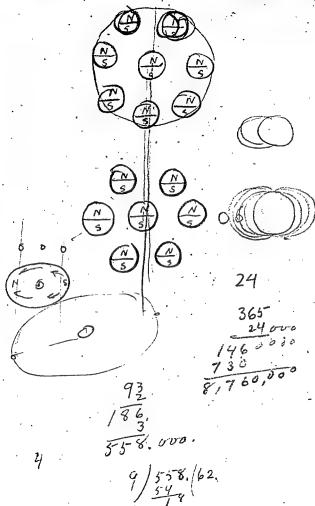 N N
S S
N N N
S S S
N N N
S S S
N N
S S
N N N
S S S
N S
N N
S S
24
365
24000
1460000
730
8,760,000
93
2
186.
3
558.000.
4
9)558.(62.
54
18